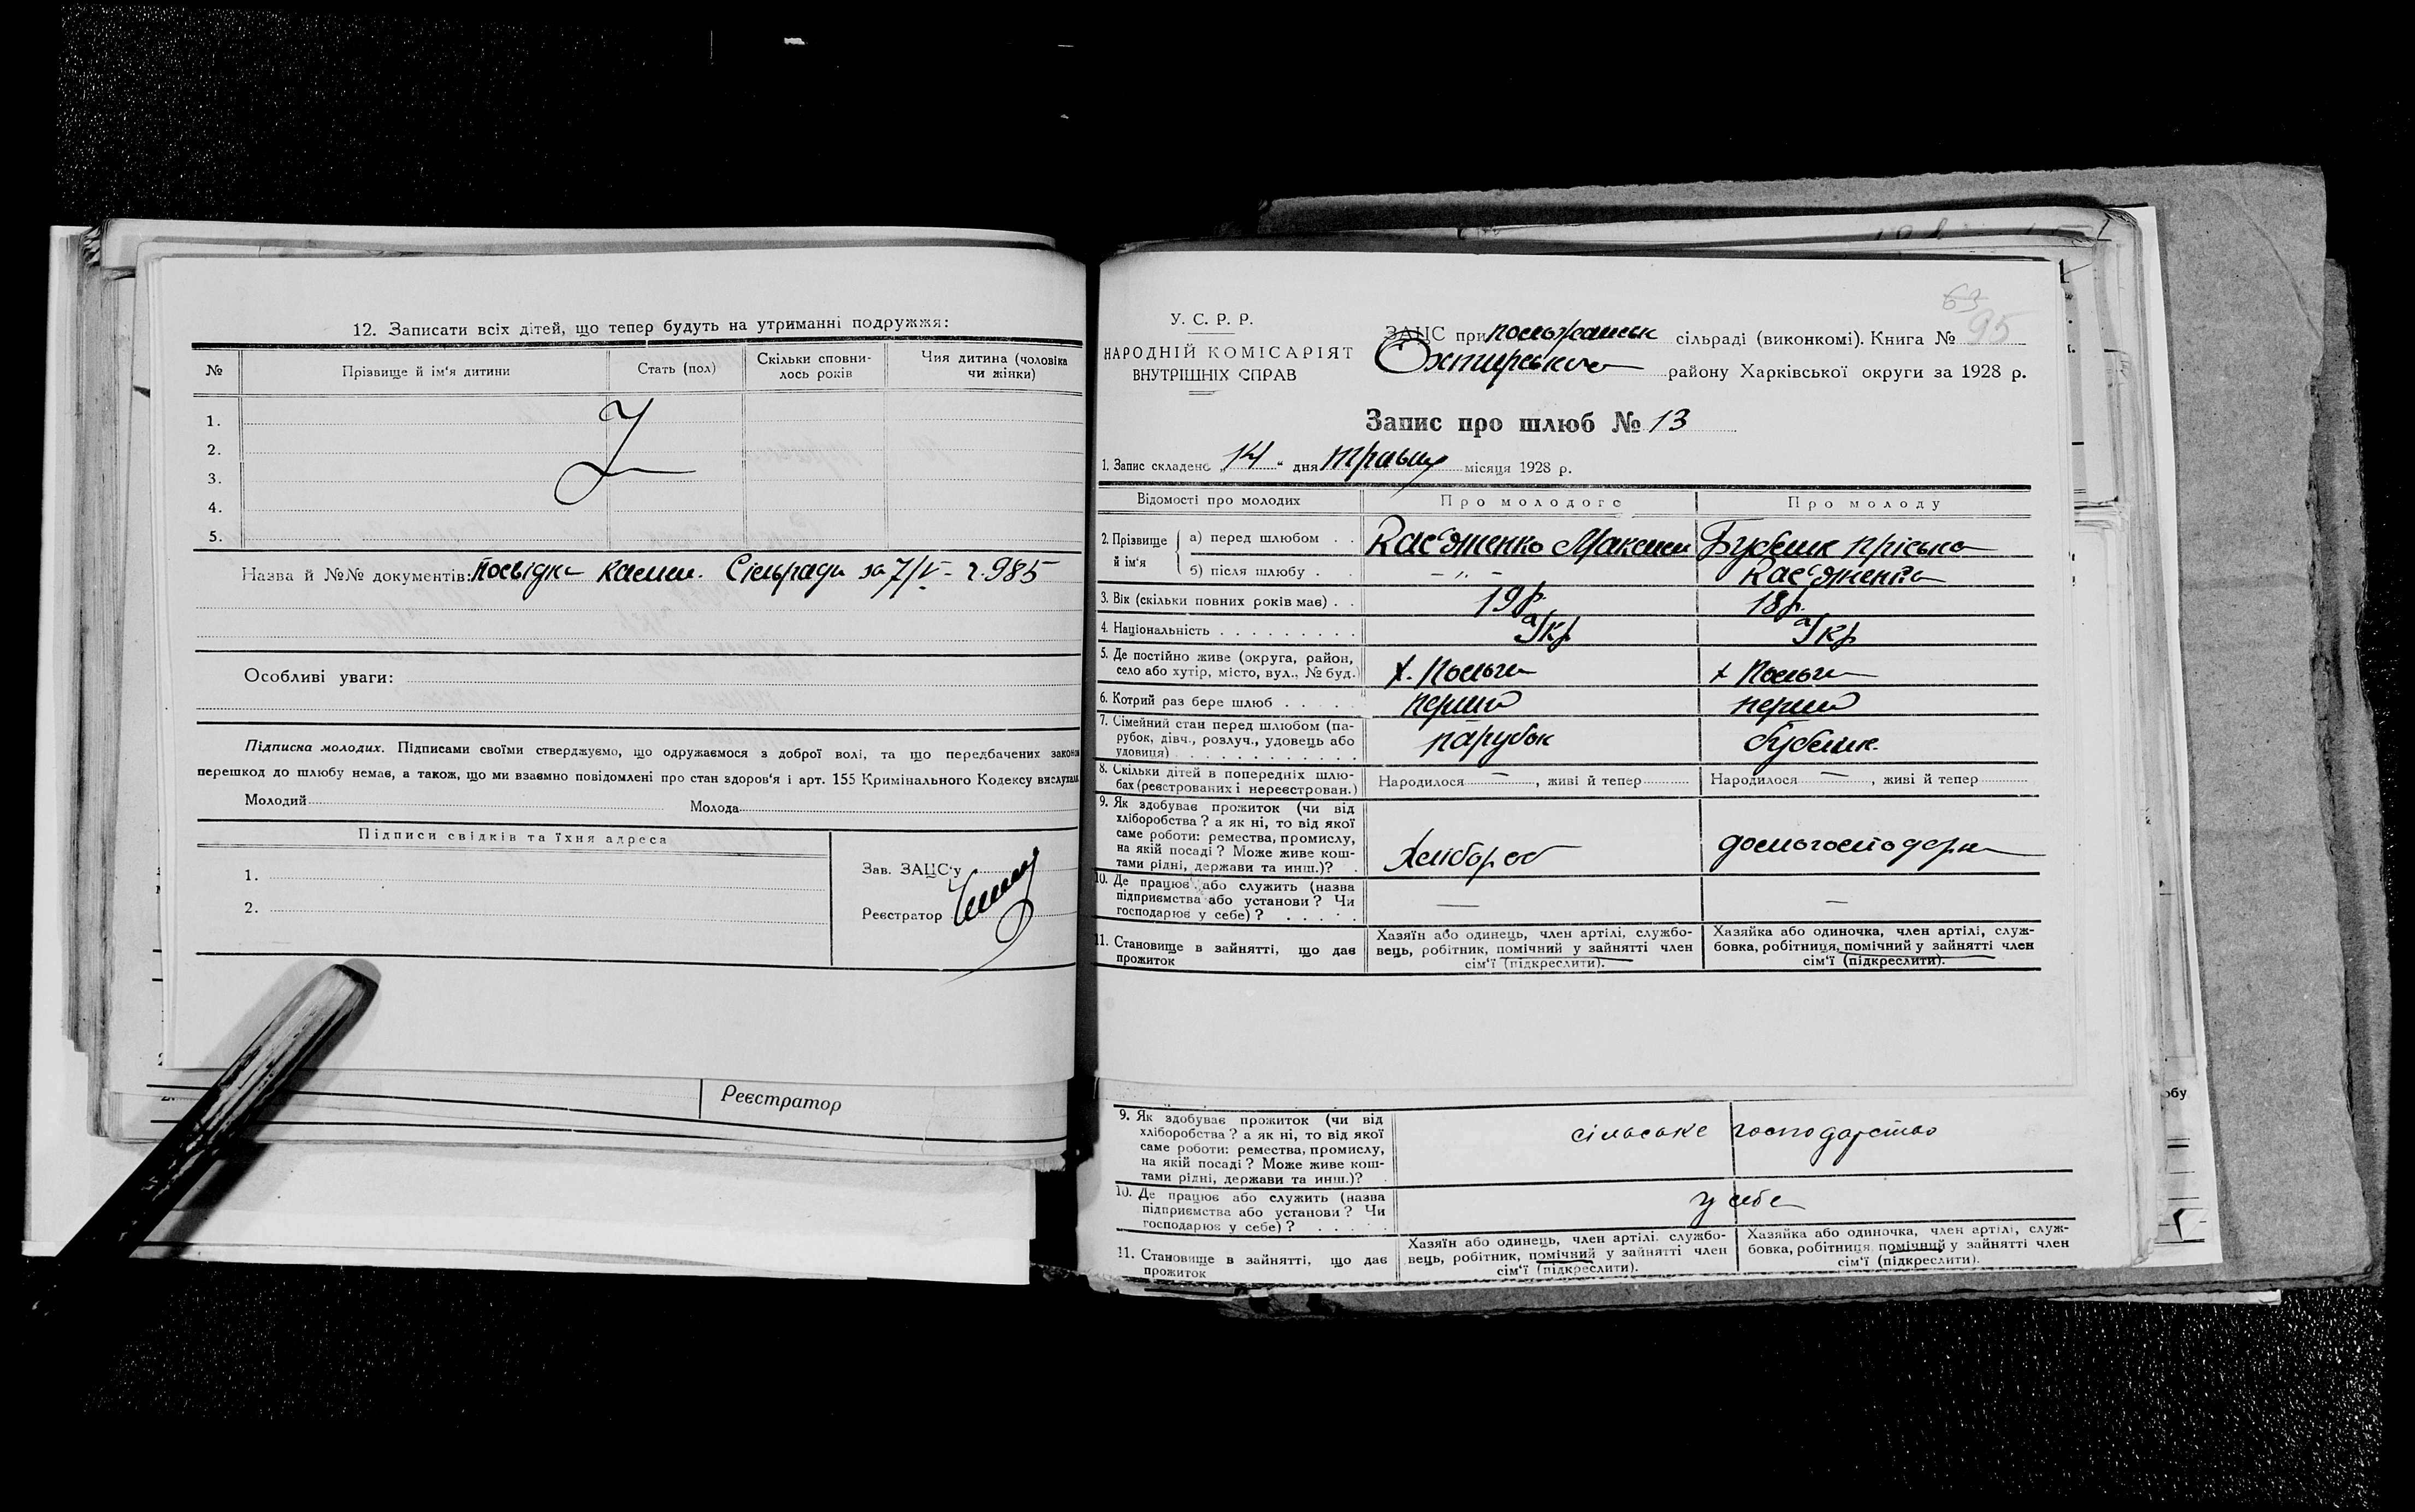 12. Записати всіх дітей, що тепер будуть на утриманні подружжя:
№ Прізвище й ім'я дитини Стать (пол) Скільки сповни-лось років Чия дитина (чоловіка чи жінки)
1.
2.
3.
4.
5.
Назва й №№ документів: посвідка Сільради за 7/V - 985
Особливі уваги:
Підписка молодих. Підписами своїми стверджуємо, що одружаємося з доброї волі, та що передбачених законом
перешкод до шлюбу немає, а також, що ми взаємно повідомлені про стан здоров'я і арт. 155 Кримінального Кодексу вислухали
Молодий Молода
Підписи свідків та їхня адреса
1.
2.
Зав. ЗАЦС'у
Реєстратор
Реєстратор
63
95
У. С. Р. Р.
НАРОДНІЙ КОМІСАРІЯТ
ВНУТРІШНІХ СПРАВ
ЗАЦС при сільраді (виконкомі). Книга №
Охтирського району Харківської округи за 1928 р.
Запис про шлюб № 13
1. Запис складено „14“ дня травня місяця 1928 р.
Відомості про молодих Про молодого Про молоду
2. Прізвище й ім'я а) перед шлюбом Максим Пріська
б) після шлюбу — " —
3. Вік (скільки повних років має) 19 р. 18 р.
4. Національність Укр Укр
5. Де постійно живе (округа, район,
село або хутір, місто, вул., № буд.) х. х
6. Котрий раз бере шлюб перший перший
7. Сімейний стан перед шлюбом (па-
рубок, дівч., розлуч., удовець або
удовиця) парубок
8. Скільки дітей в попередніх шлю-
бах (реєстрованих і нереєстрован.) Народилося —, живі й тепер Народилося —, живі й тепер
9. Як здобуває прожиток (чи від
хліборобства? а як ні, то від якої
саме роботи: ремества, промислу,
на якій посаді? Може живе кош-
тами рідні, держави та инш.)? хлібороб домогосподарка
10. Де працює або служить (назва
підприємства або установи? Чи
господарює у себе)? — —
11. Становище в зайнятті, що дає
прожиток
Хазяїн або одинець, член артілі, службо-
вець, робітник, помічний у зайнятті член
сім'ї (підкреслити).
Хазяйка або одиночка, член артілі, служ-
бовка, робітниця, помічний у зайнятті член
сім'ї (підкреслити).
9. Як здобуває прожиток (чи від
хліборобства? а як ні, то від якої
саме роботи: ремества, промислу,
на якій посаді? Може живе кош-
тами рідні, держави та инш.)? сільське господарство
10. Де працює або служить (назва
підприємства або установи? Чи
господарює у себе)? у себе
11. Становище в зайнятті, що дає
прожиток
Хазяїн або одинець, член артілі, службо-
вець, робітник, помічний у зайнятті член
сім'ї (підкреслити).
Хазяйка або одиночка, член артілі, служ-
бовка, робітниця, помічний у зайнятті член
сім'ї (підкреслити).